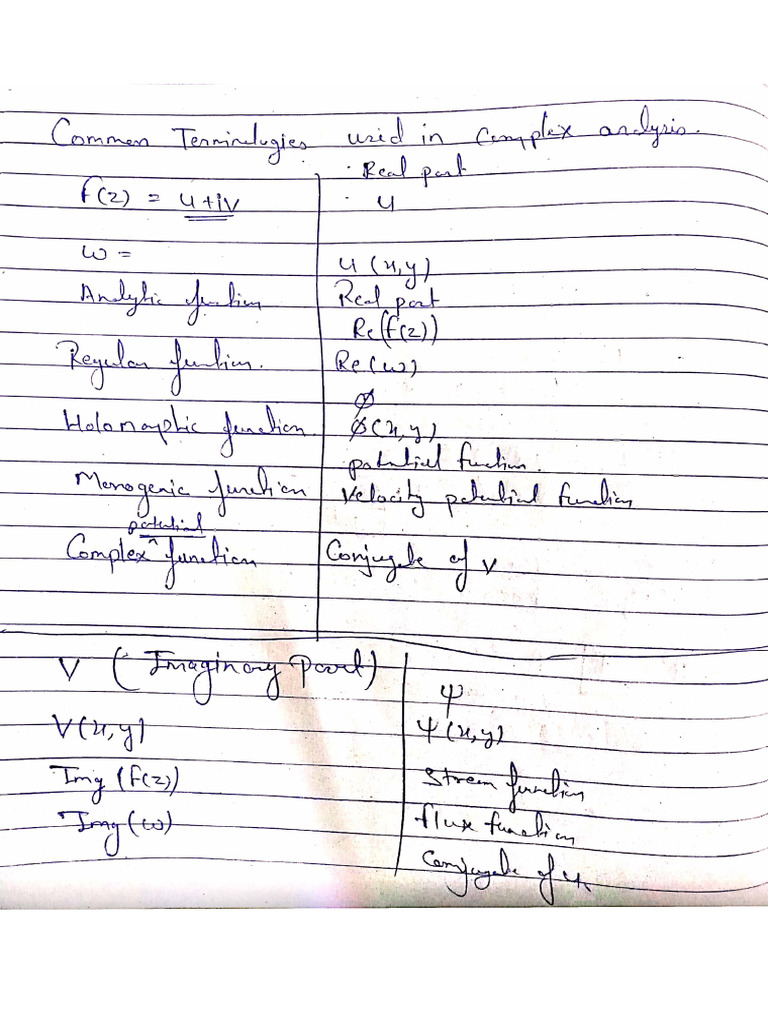 Common Terminologies used in complex analysis.
· Real part
f(z) = u+iv
· u
w =
u (x,y)
Analytic function
Real part
Re(f(z))
Regular function.
Re(w)
φ
Holomorphic function
φ(x,y)
potential function.
Monogenic function
Velocity potential function
potential
Complex ^ function
Conjugate of v
V ( Imaginary Part)
ψ
V(x,y)
ψ(x,y)
Img (f(z))
Stream function
Img(w)
flux function
Conjugate of u